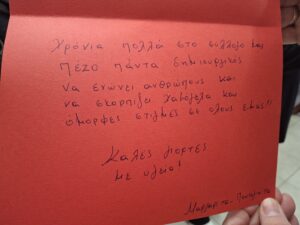 Χρόνια πολλά στο σύλλογο μας
πέζο πάντα δημιουργικός
να ενώνει ανθρώπους και
να σκορπίζει χαμόγελα και
όμορφες στιγμές σε όλους εμάς!!
Καλές γιορτές
με υγεία!
Μαργαρίτα